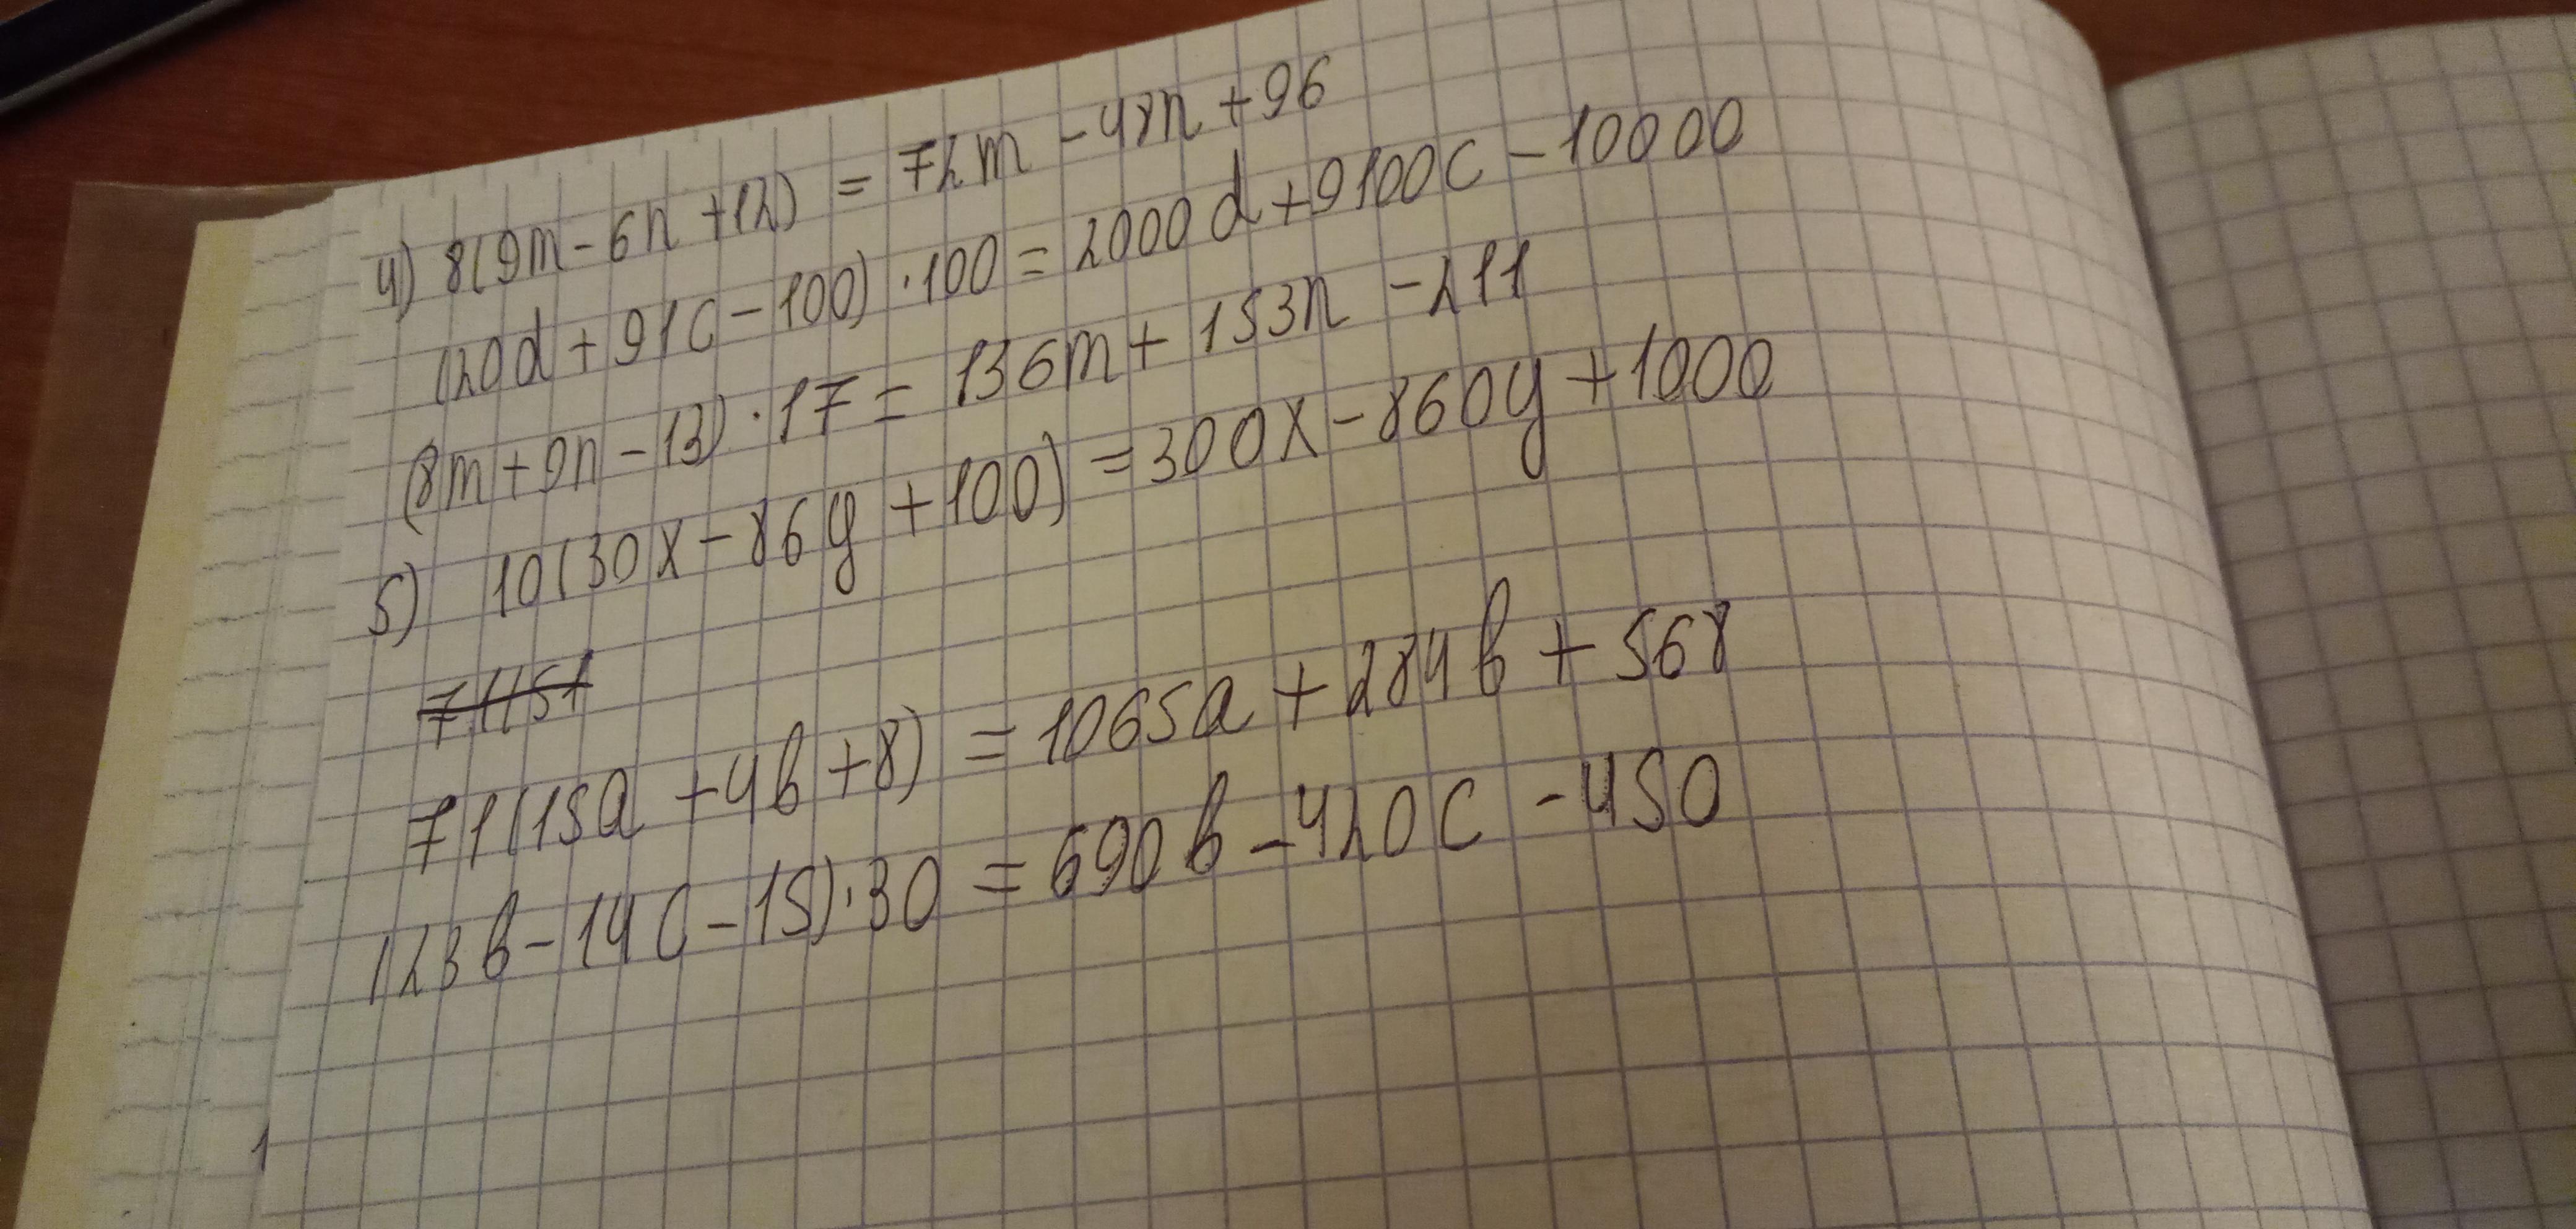 4) 8(9m - 6n + 12) = 72m - 48n + 96
(20d + 91c - 100) · 100 = 2000d + 9100c - 10000
(8m + 9n - 13) · 17 = 136m + 153n - 211
5) 10(30x - 86y + 100) = 300x - 860y + 1000
71(15a + 4b + 8) = 1065a + 284b + 568
(23b - 14c - 15) · 30 = 690b - 420c - 450